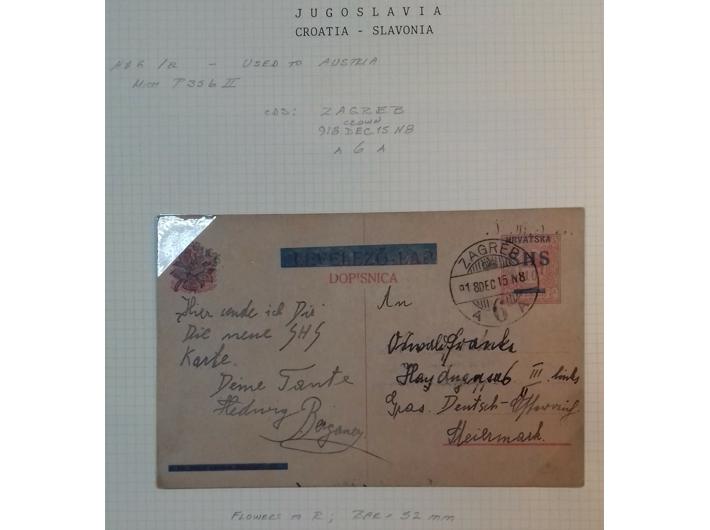 JUGOSLAVIA
CROATIA - SLAVONIA
- USED TO AUSTRIA
MICH P35b II
CDS: ZAGREB
CROWN
918 DEC 15 N8
A 6 A
HRVATSKA
SHS
LEVELEZŐ-LAP
DOPISNICA
ZAGREB
918DEC15N8
A 6 A
Hier sende ich Dir
Die neue SHS
Karte.
Deine Tante
Hedwig
An
Oswald Franke
III. links
Graz. Deutsch-Österreich.
Steiermark.
FLOWERS IN R; BAR = 52 mm